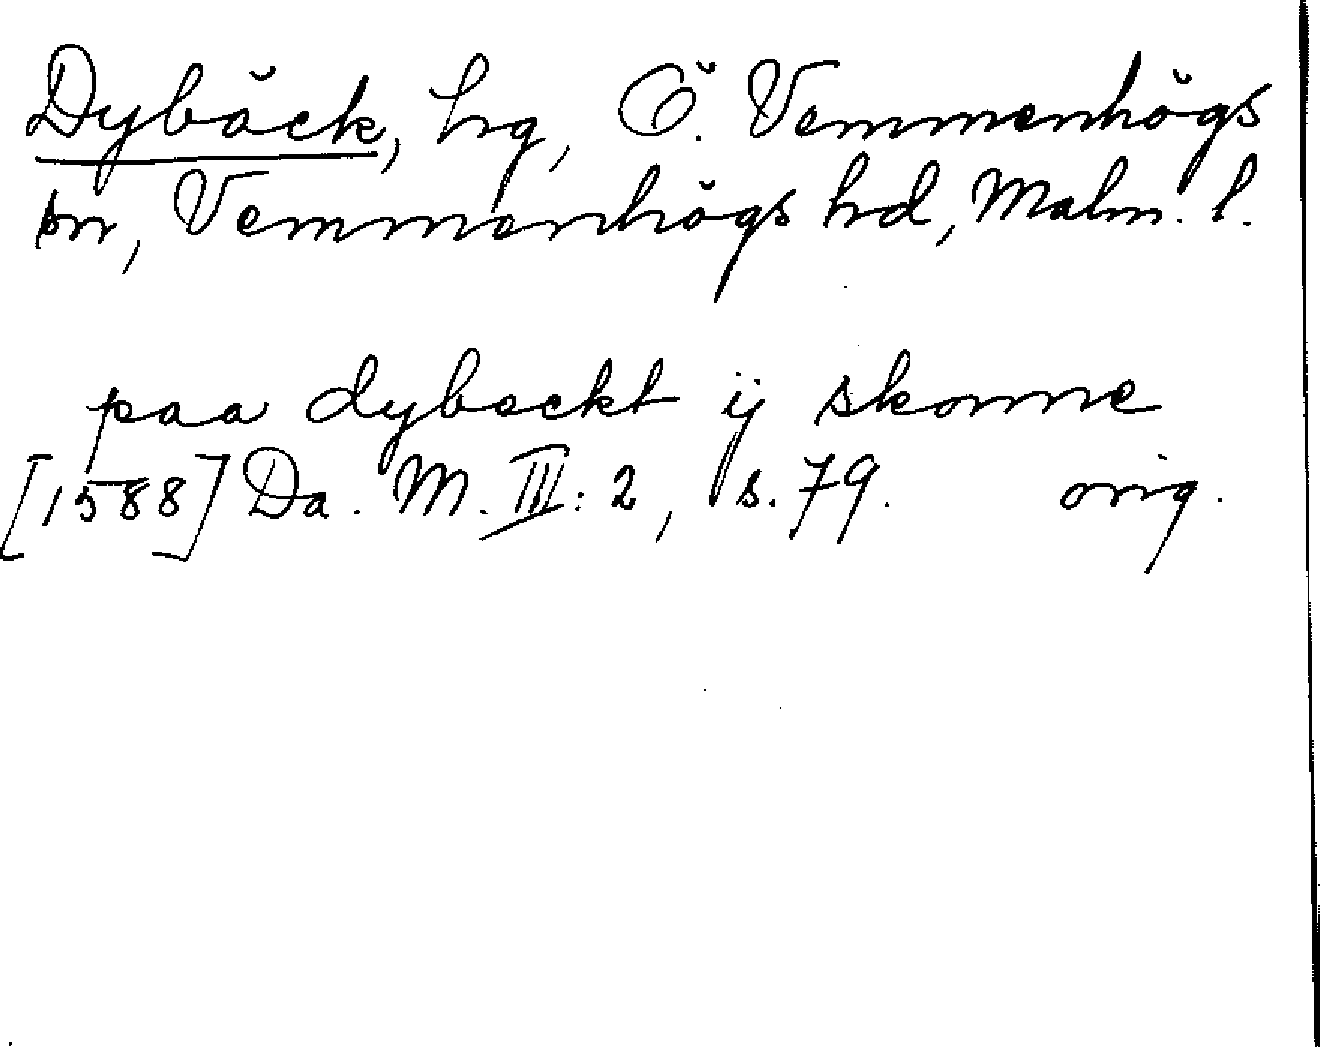 Dybäck, hrg, Ö. Vemmenhögs
sn, Vemmenhögs hd, Malm. l.
paa dybeckt ij skonne
[1588] Da. M. III: 2, s. 79. orig.